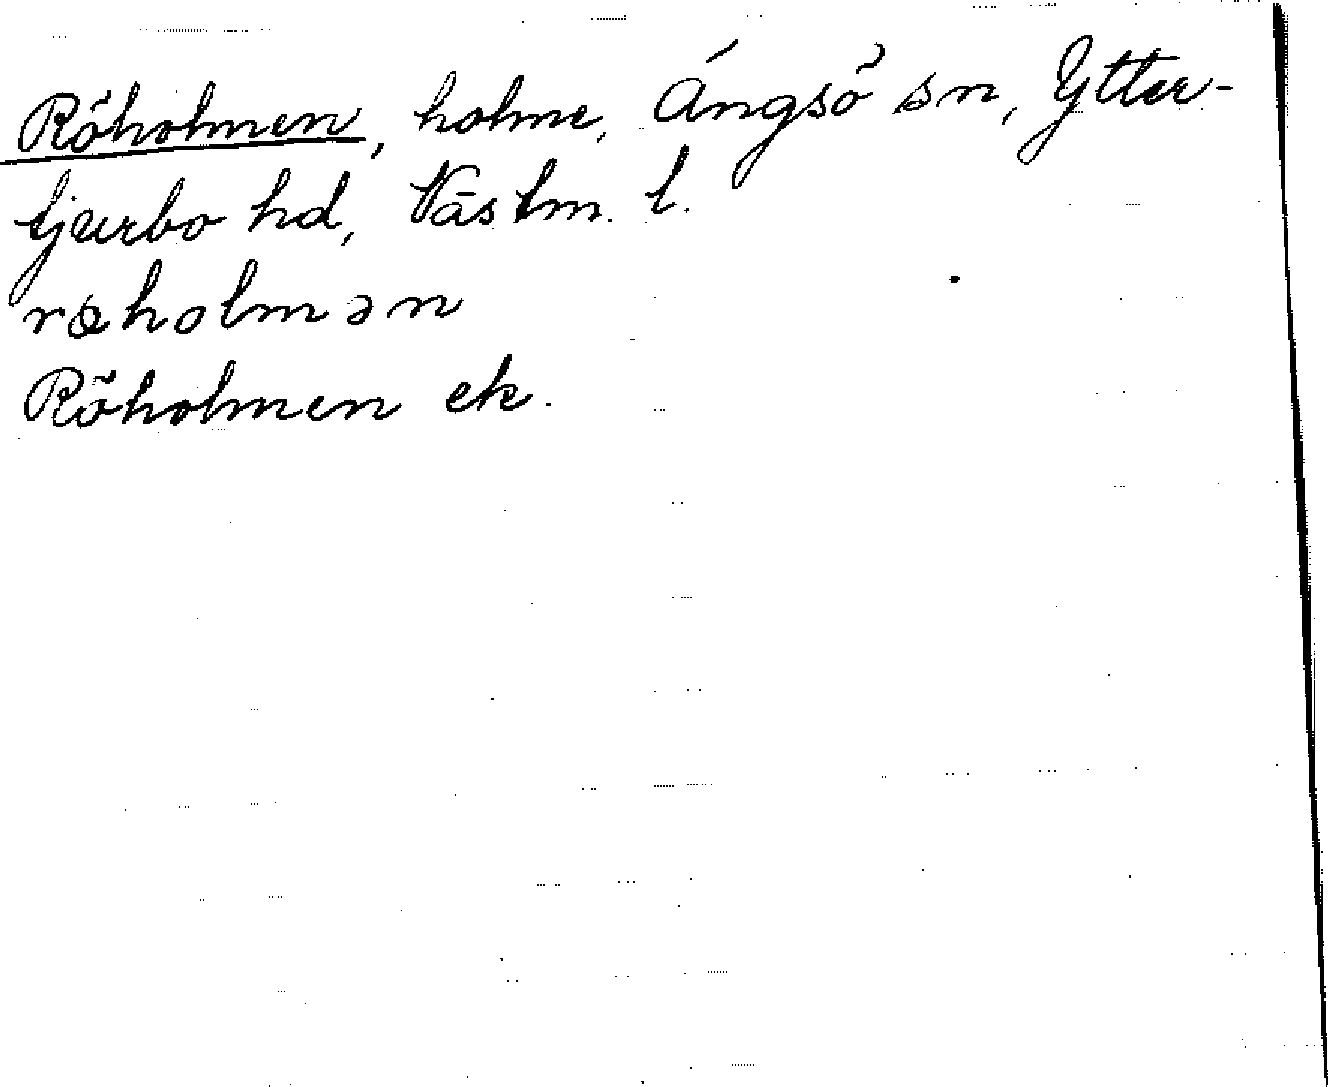 Röholmen, holme, Ängsö sn, Ytter-
tjurbo hd, Västm. l.
røholmən
Röholmen ek.